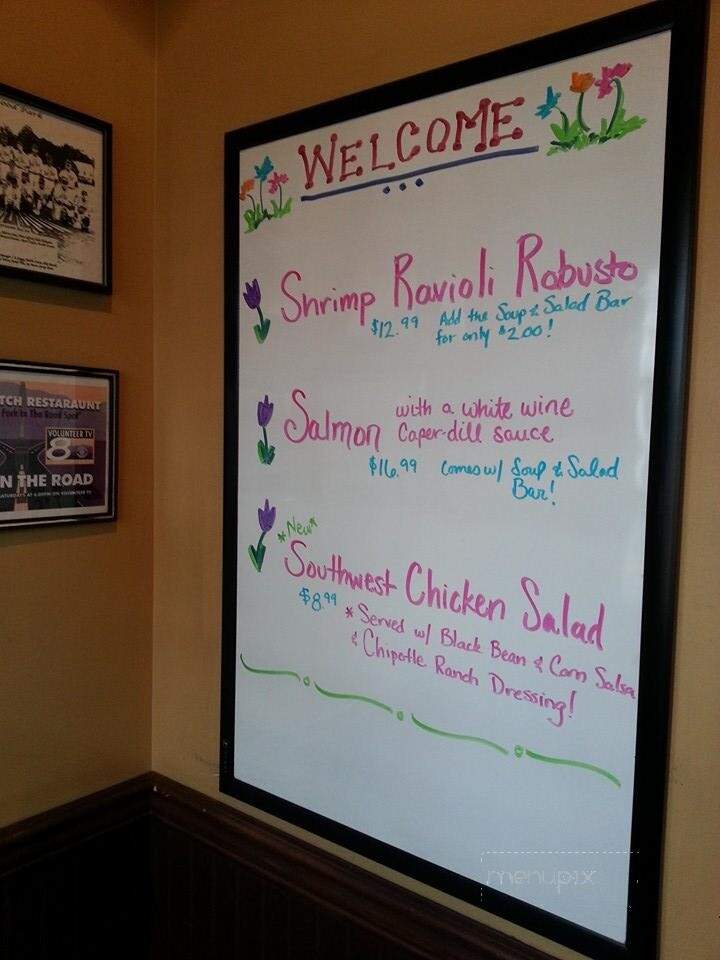 WELCOME
Shrimp Ravioli Robusto
$12.99 Add the Soup & Salad Bar
for only $2.00!
Salmon with a white wine
Caper-dill sauce
$16.99 Comes w/ Soup & Salad
Bar!
*New*
Southwest Chicken Salad
$8.99 * Served w/ Black Bean & Corn Salsa
& Chipotle Ranch Dressing!
TCH RESTARAUNT
Fork In The Road Spot"
VOLUNTEER TV
8
N THE ROAD
menupix